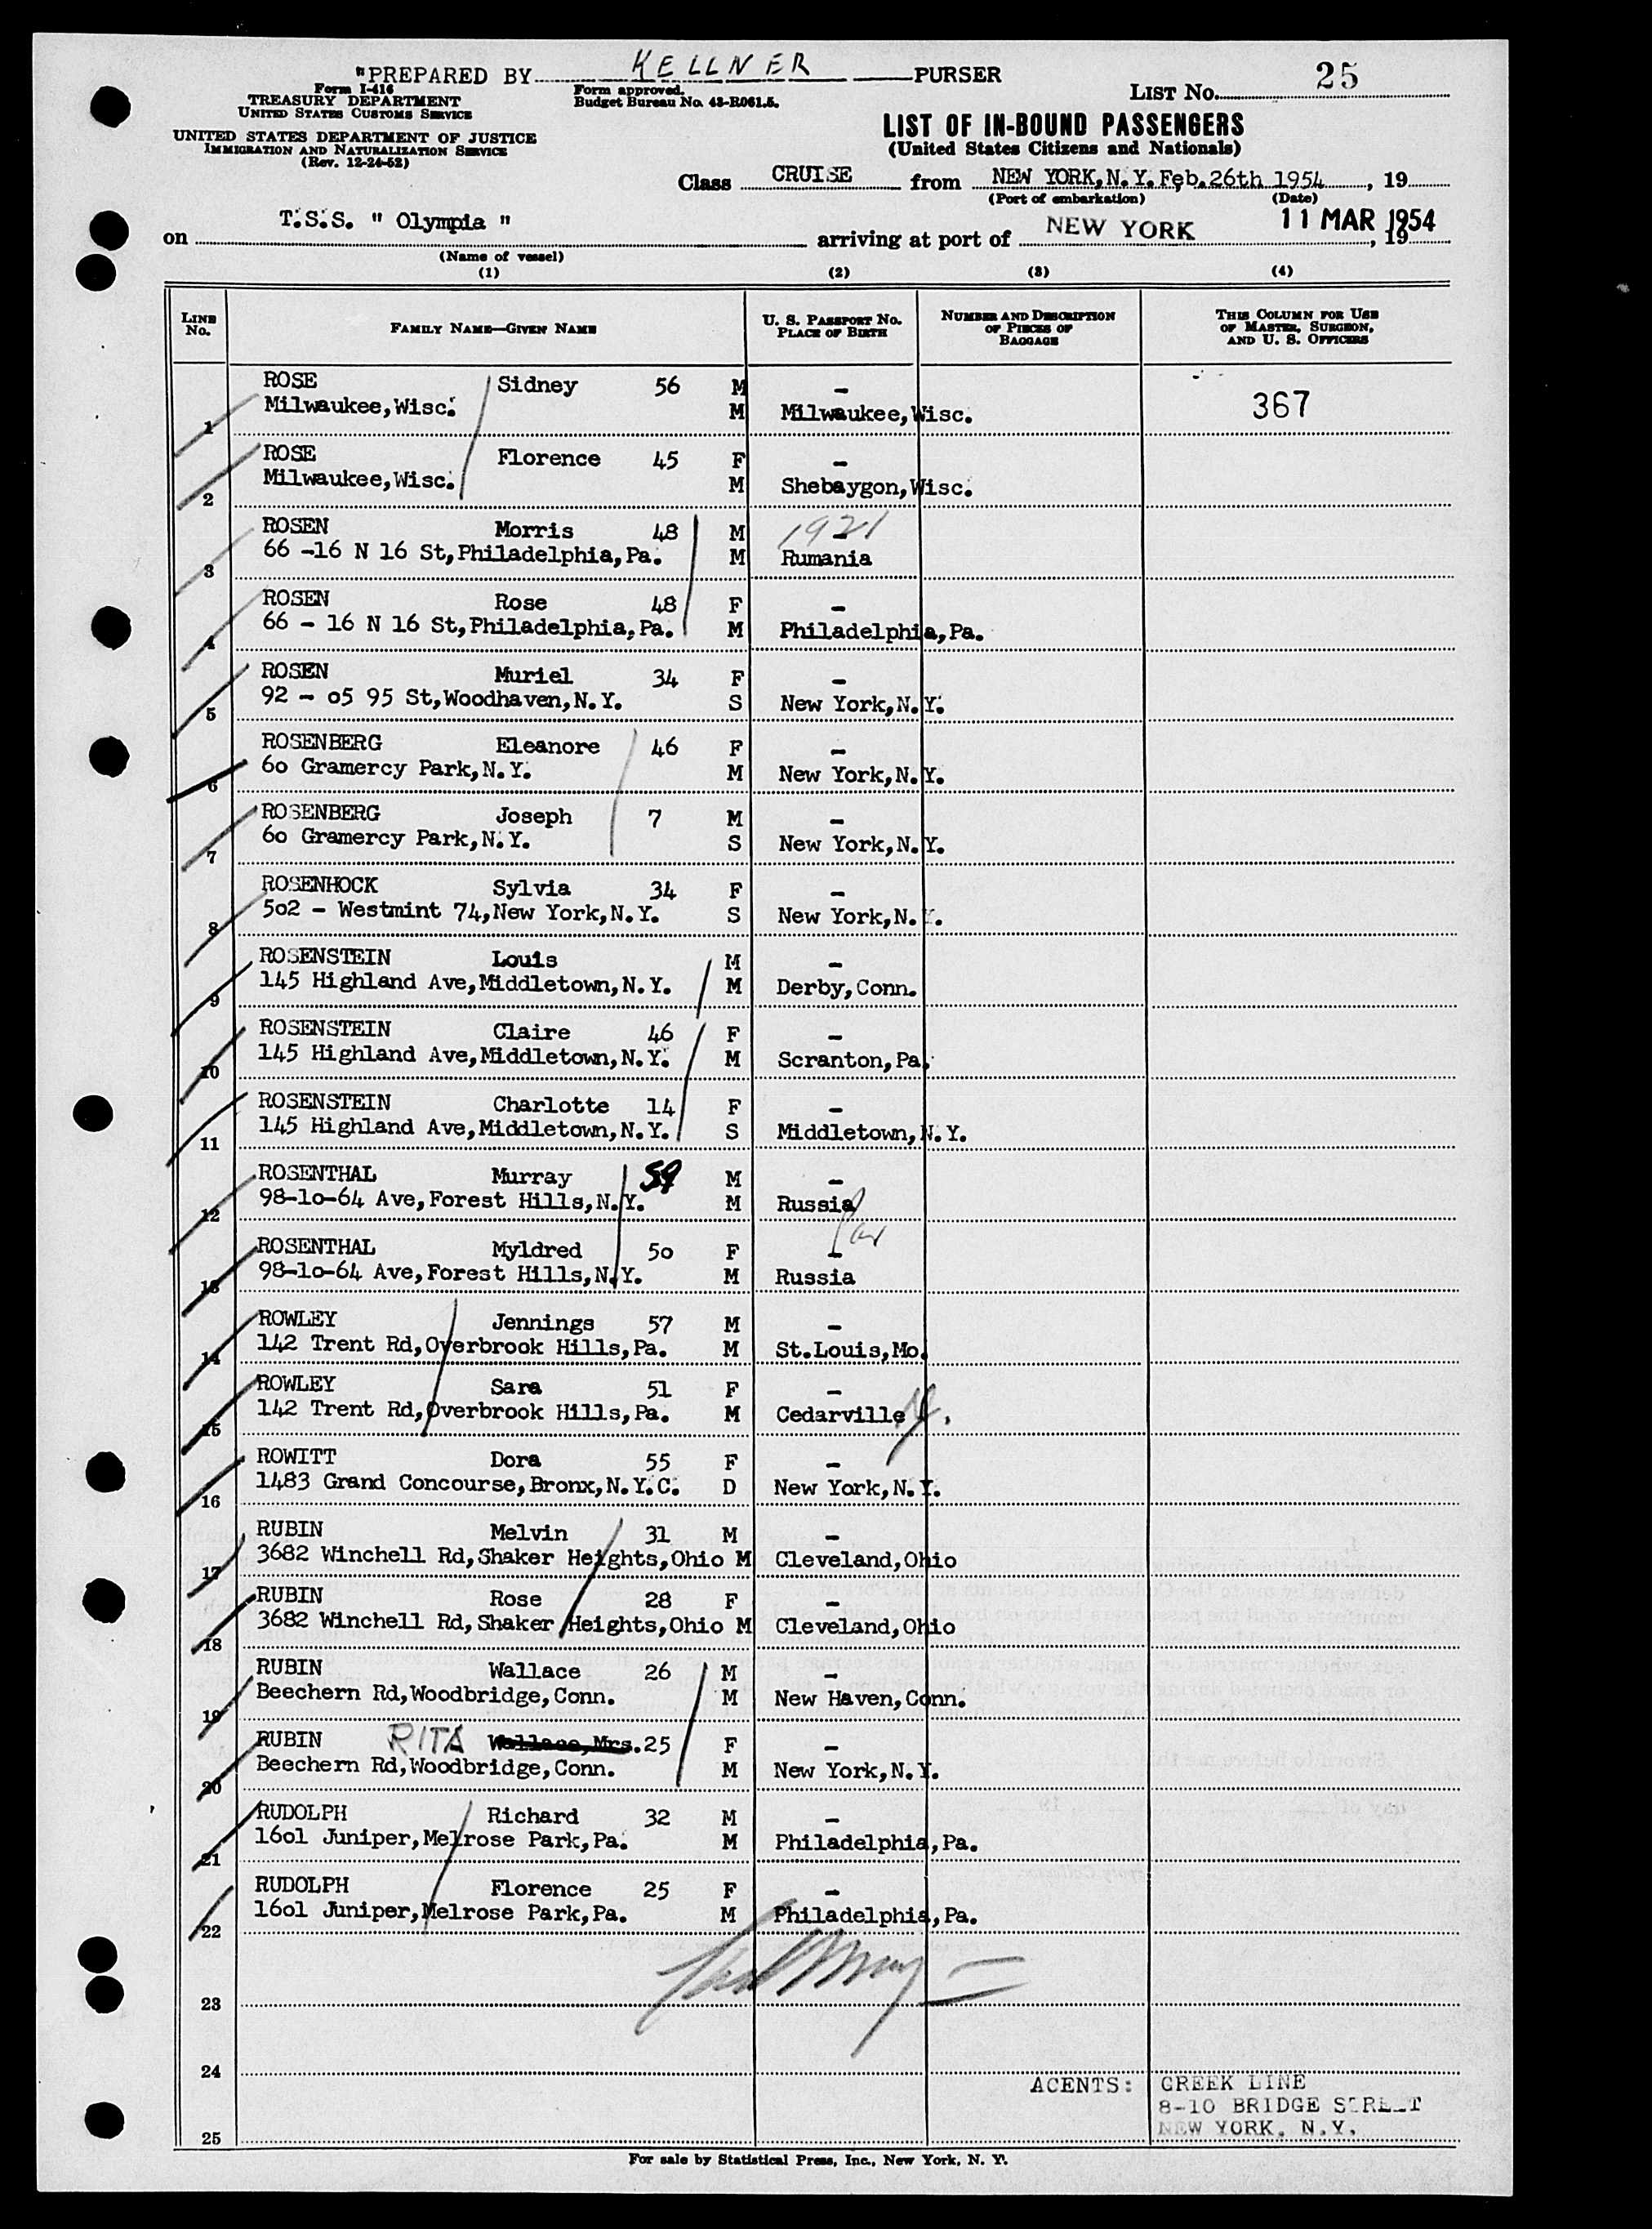 "PREPARED BY KELLNER PURSER
Form I-416
TREASURY DEPARTMENT
UNITED STATES CUSTOMS SERVICE
Form approved.
Budget Bureau No. 43-R061.5.
LIST No. 25
UNITED STATES DEPARTMENT OF JUSTICE
IMMIGRATION AND NATURALIZATION SERVICE
(Rev. 12-24-52)
LIST OF IN-BOUND PASSENGERS
(United States Citizens and Nationals)
Class CRUISE from NEW YORK, N.Y. Feb. 26th 1954, 19
(Port of embarkation) (Date)
on T.S.S. " Olympia " arriving at port of NEW YORK 11 MAR 1954, 19
(Name of vessel)
(1) (2) (3) (4)
LINE No. FAMILY NAME—GIVEN NAME U. S. PASSPORT No. PLACE OF BIRTH NUMBER AND DESCRIPTION OF PIECES OF BAGGAGE THIS COLUMN FOR USE OF MASTER, SURGEON, AND U. S. OFFICERS
ROSE Sidney 56 M - 367
1 Milwaukee, Wisc. M Milwaukee, Wisc.
ROSE Florence 45 F -
2 Milwaukee, Wisc. M Shebaygon, Wisc.
ROSEN Morris 48 M - 1921
3 66 -16 N 16 St, Philadelphia, Pa. M Rumania
ROSEN Rose 48 F -
4 66 - 16 N 16 St, Philadelphia, Pa. M Philadelphia, Pa.
ROSEN Muriel 34 F -
5 92 - o5 95 St, Woodhaven, N.Y. S New York, N.Y.
ROSENBERG Eleanore 46 F -
6 6o Gramercy Park, N.Y. M New York, N.Y.
ROSENBERG Joseph 7 M -
7 6o Gramercy Park, N.Y. S New York, N.Y.
ROSENHOCK Sylvia 34 F -
8 5o2 - Westmint 74, New York, N.Y. S New York, N.Y.
ROSENSTEIN Louis M -
9 145 Highland Ave, Middletown, N.Y. M Derby, Conn.
ROSENSTEIN Claire 46 F -
10 145 Highland Ave, Middletown, N.Y. M Scranton, Pa.
ROSENSTEIN Charlotte 14 F -
11 145 Highland Ave, Middletown, N.Y. S Middletown, N.Y.
ROSENTHAL Murray 59 M -
12 98-1o-64 Ave, Forest Hills, N.Y. M Russia
ROSENTHAL Myldred 5o F -
13 98-1o-64 Ave, Forest Hills, N.Y. M Russia
ROWLEY Jennings 57 M -
14 142 Trent Rd, Overbrook Hills, Pa. M St. Louis, Mo.
ROWLEY Sara 51 F -
15 142 Trent Rd, Overbrook Hills, Pa. M Cedarville
ROWITT Dora 55 F -
16 1483 Grand Concourse, Bronx, N.Y.C. D New York, N.Y.
RUBIN Melvin 31 M -
17 3682 Winchell Rd, Shaker Heights, Ohio M Cleveland, Ohio
RUBIN Rose 28 F -
18 3682 Winchell Rd, Shaker Heights, Ohio M Cleveland, Ohio
RUBIN Wallace 26 M -
19 Beechern Rd, Woodbridge, Conn. M New Haven, Conn.
RUBIN RITA Wallace, Mrs. 25 F -
20 Beechern Rd, Woodbridge, Conn. M New York, N.Y.
RUDOLPH Richard 32 M -
21 16o1 Juniper, Melrose Park, Pa. M Philadelphia, Pa.
RUDOLPH Florence 25 F -
22 16o1 Juniper, Melrose Park, Pa. M Philadelphia, Pa.
23
24
AGENTS: GREEK LINE
8-10 BRIDGE STREET
25 NEW YORK, N.Y.
For sale by Statistical Press, Inc., New York, N. Y.